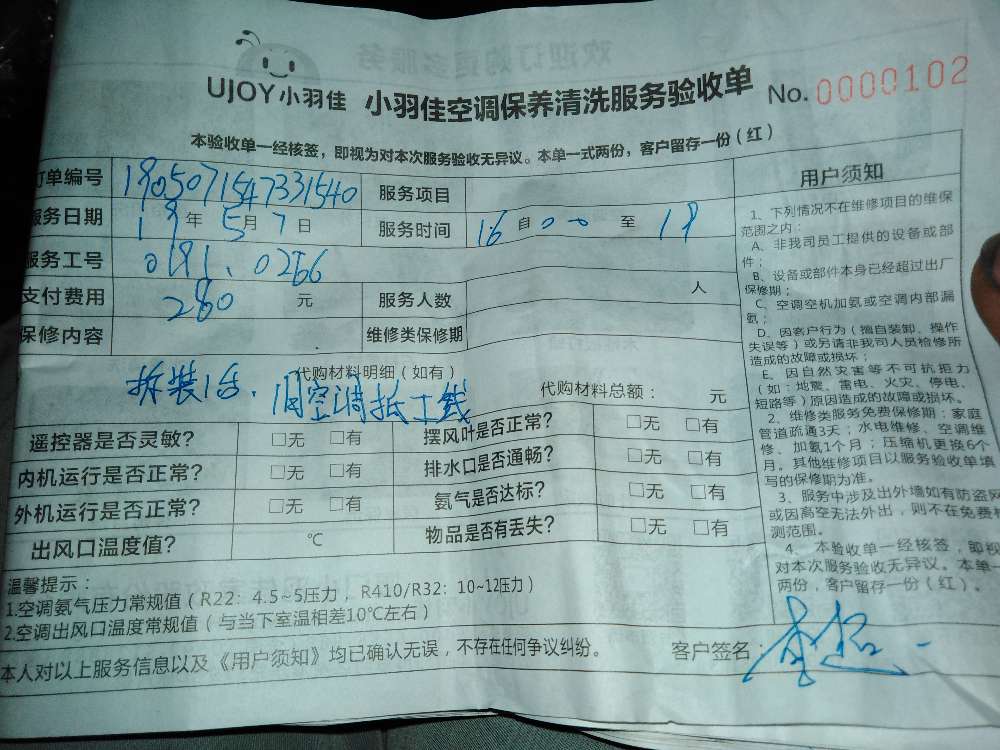 UJOY小羽佳 小羽佳空调保养清洗服务验收单 No.0000102
本验收单一经核签，即视为对本次服务验收无异议。本单一式两份，客户留存一份（红）
订单编号 1905071547331540 服务项目
服务日期 19年5月7日 服务时间 16自00至19
服务工号 0191.0266
支付费用 280元 服务人数 人
保修内容 维修类保修期
代购材料明细（如有） 代购材料总额： 元
拆装1台. 空调
遥控器是否灵敏？ □无 □有 摆风叶是否正常？ □无 □有
内机运行是否正常？ □无 □有 排水口是否通畅？ □无 □有
外机运行是否正常？ □无 □有 氨气是否达标？ □无 □有
出风口温度值？ ℃ 物品是否有丢失？ □无 □有
温馨提示：
1.空调氨气压力常规值（R22：4.5~5压力，R410/R32：10~12压力）
2.空调出风口温度常规值（与当下室温相差10℃左右）
本人对以上服务信息以及《用户须知》均已确认无误，不存在任何争议纠纷。 客户签名：
用户须知
1、下列情况不在维修项目的维保
范围之内：
A、非我司员工提供的设备或部
件；
B、设备或部件本身已经超过出厂
保修期；
C、空调空机加氨或空调内部漏
氨；
D、因客户行为（擅自装卸、操作
失误等）或另请非我司人员检修所
造成的故障或损坏；
E、因自然灾害等不可抗拒力
（如：地震、雷电、火灾、停电、
短路等）原因造成的故障或损坏。
2、维修类服务免费保修期：家庭
管道疏通3天；水电维修、空调维
修、加氨1个月；压缩机更换6个
月。其他维修项目以服务验收单填
写的保修期为准。
3、服务中涉及出外墙如有防盗网
或因高空无法外出，则不在免费检
测范围。
4、本验收单一经核签，即视
对本次服务验收无异议。本单一
两份，客户留存一份（红）。